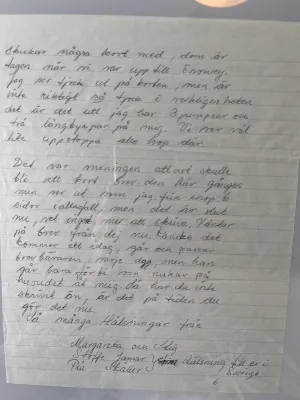 Skickar några kort med, dom är
tagen när vi var upp till Enavrey.
jag ser tjock ut på korten, men är
inte riktigt så tjock i verkligenheten
det är det att jag har 3 jumprar och
två långbyxor på mig. Vi ser väl
lite uppstoppa alle hop där.
Det var meningen att det skulle
bli ett kort brev den här gången
men ser ut som jag fick ihop 6
sidor i allafall, men det är slut
nu, vet inget mer att skriva. Väntar
på brev från dej nu. Kanske det
kommer ett idag, går och passar
brevbäraren varje dag, men han
går bara förbi mig, ruskar på
huvudet åt mig. Så har du inte
skrivit än, är det på tiden du
gör det nu.
Så många Hälsningar från
Margareta och Stig
hälsning till er i
Sverige
6